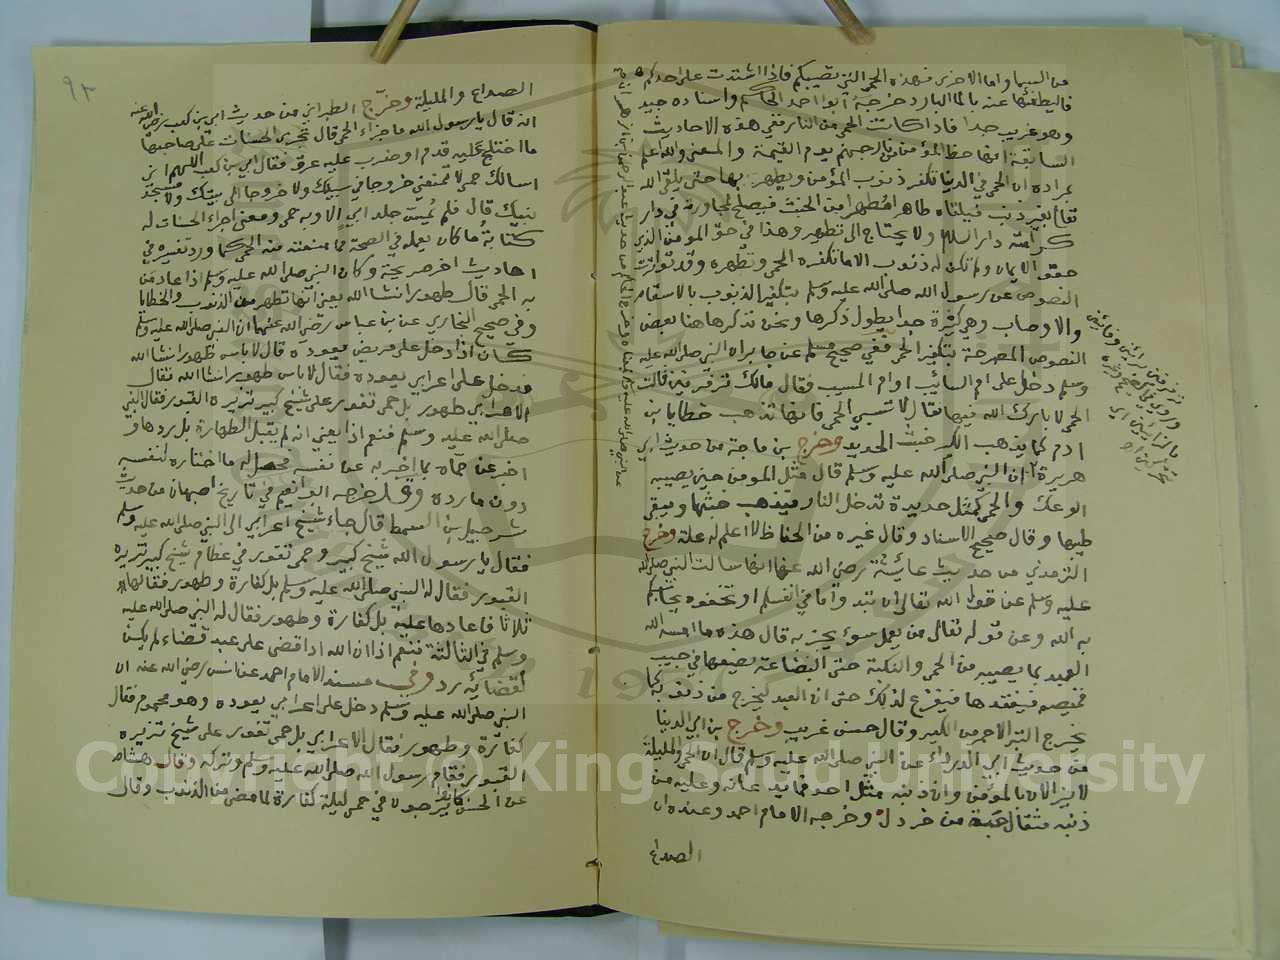 من السبيا واما الاخرى فهذه الحمى التي تصيبكم فاذا اشتدت على احدكم
فاليطفئها عنه بالماء البارد خرجه ابوا احمد الحاكم واسناده جيد
وهو غريب جدا فاذا كانت الحمى من النار ففي هذه الاحاديث
السابقة انها حظ المؤمن من نار جهنم يوم القيمة والمعنى والله اعلم
بمراده ان الحمى في الدنيا تكفر ذنوب المؤمن ويطهر بها حتى يلقى الله
تعالى بغير ذنب فيلقاه طاهرا مطهرا من الخبث فيصلح لمجاورته في دار
كرامته دار السلام ولا يحتاج الى تطهير وهذا في حق المومن الذي
حقق الايمان ولم تكن له ذنوب الا ما تكفره الحمى وتطهره وقد تواترت
النصوص عن رسول الله صلى الله عليه وسلم بتكفير الذنوب بالاسقام
والاوصاب وهي كثيرة جدا يطول ذكرها ونحن نذكر هاهنا بعض
النصوص المصرحة بتكفير الحمى ففي صحيح مسلم عن جابر ان النبي صلى الله عليه
وسلم دخل على ام السائب او ام المسيب فقال مالك تزفزفين قالت
الحمى لا بارك الله فيها فقال لا تسبي الحمى فانها تذهب خطايا بني
ادم كما يذهب الكير خبث الحديد وخرج بن ماجة من حديث ابي
هريرة ان النبي صلى الله عليه وسلم قال مثل المومن حين يصيبه
الوعك والحمى كمثل حديدة تدخل النار فيذهب خبثها ويبقى
طيبها وقال صحيح الاسناد وقال غيره من الحفاظ لا اعلم له علة وخرج
الترمذي من حديث عايشة رضي الله عنها انها سالت النبي صلى الله
عليه وسلم عن قول الله تعالى ان تبدوا ما في انفسكم او تخفوه يحاسبكم
به الله وعن قوله تعالى من يعمل سوء يجز به قال هذه ما امسه الله
العبد بما يصيبه من الحمى والنكبة حتى البضاعة يضعها في جيب
قميصه فيفقدها فيفزع لذلك حتى ان العبد ليخرج من ذنوبه كما
يخرج التبر الاحمر من الكير وقال حسن غريب وخرج بن ابي الدنيا
من حديث ابي الدرداء عن النبي صلى الله عليه وسلم قال ان الحمى والمليلة
لا يزالان بالمؤمن وان ذنبه مثل احد فما يدعانه وعليه من
ذنبه مثقال حبة من خردل وخرجه الامام احمد وعنده ان
الصداع
٩٢
الصداع والمليلة وخرج الطبراني من حديث ابي بن كعب رضي الله عنه
انه قال يا رسول الله ما جزاء الحمى قال تجرى الحسنات على صاحبها
ما اختلج عليه قدم او ضرب عليه عرق فقال ابي بن كعب اللهم اني
اسالك حمى لا تمنعني خروجا في سبيلك ولا خروجا الى بيتك ولا مسجد
نبيك قال فلم يمس جلد ابي الا وبه حمى ومعنى اجراء الحسنات له
كتابة ما كان يعمله في الصحة مما منعته منه الحمى كما ورد تفسيره في
احاديث اخر صريحة وكان النبي صلى الله عليه وسلم اذا عاد من
به الحمى قال طهور انشا الله يعني انها تطهر من الذنوب والخطايا
وفي صحيح البخاري عن بن عباس رضي الله عنهما ان النبي صلى الله عليه وسلم
كان اذا دخل على مريض يعوده قال لا باس طهور انشا الله
فدخل على اعرابي يعوده فقال لا باس طهور انشا الله فقال
الاعرابي طهور بل حمى تفور على شيخ كبير تزيره القبور فقال النبي
صلى الله عليه وسلم فنعم اذا يعني انه لم يقبل الطهارة بل ردها و
اخبر عن حماه بما يخبر به عن نفسه فحصل له ما اختاره لنفسه
دون ما رده وقد خرجه ابو انعيم في تاريخ اصبهان من حديث
شرحبيل بن السمط قال جاء شيخ اعرابي الى النبي صلى الله عليه وسلم
فقال يا رسول الله شيخ كبير وحمى تفور في عظام شيخ كبير تزيره
القبور فقال له النبي صلى الله عليه وسلم بل كفارة وطهور فقالها
ثلاثا فاعادها عليه بل كفارة وطهور فقال له النبي صلى الله عليه
وسلم في الثالثة فنعم اذا ان الله اذا قضى على عبد قضاء لم يكن
لقضائه رد وفي مسند الامام احمد عن انس رضي الله عنه ان
النبي صلى الله عليه وسلم دخل على اعرابي يعوده وهو محموم فقال
كفارة وطهور فقال الاعرابي بل حمى تفور على شيخ تزيره
القبور فقام رسول الله صلى الله عليه وسلم وتركه وقال هشام
عن الحسن كانوا يرجون في حمى ليلة كفارة لما مضى من الذنوب وقال
Copyright © King Saud University